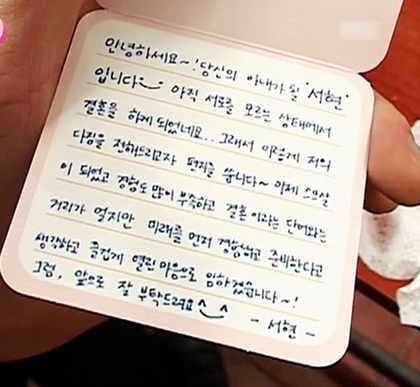 안녕하세요~! 당신의 아내가 될 "서현"
입니다 아직 서로를 모르는 상태에서
결혼을 하게 되었네요... 그래서 이렇게 저의
다짐을 전해드리고자 편지를 씁니다~ 이제 스무살
이 되었고 경험도 많이 부족하고 결혼 이라는 단어와는
거리가 멀지만 미래를 먼저 경험하고 준비한다고
생각하고 즐겁게 열린 마음으로 임하겠습니다~!
그럼, 앞으로 잘 부탁드려요^_^
- 서현 -